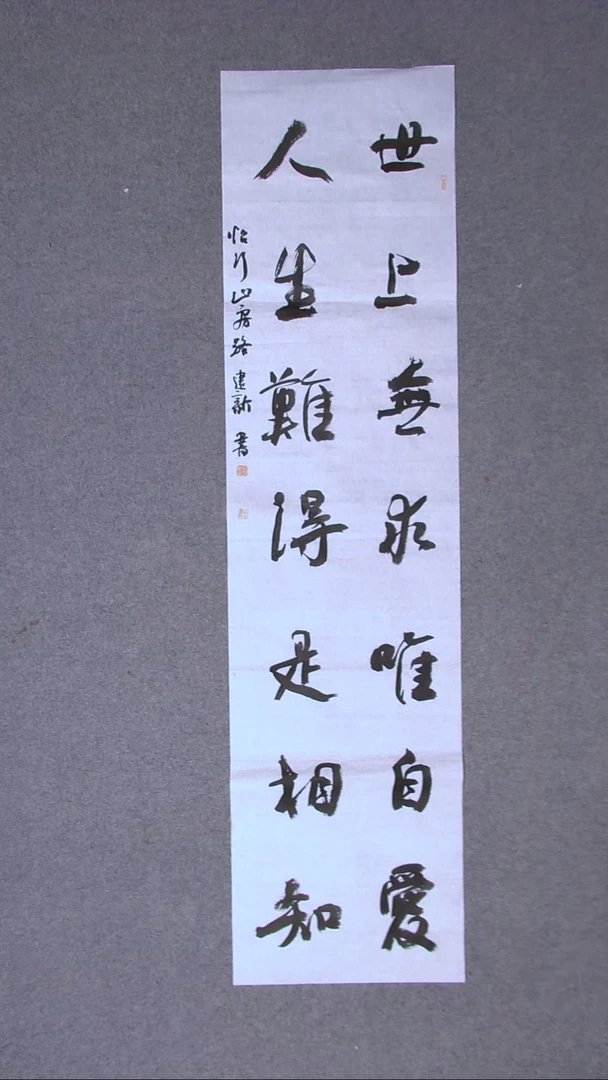 世上無求唯自愛
人生難得是相知
怡行山房路建新書